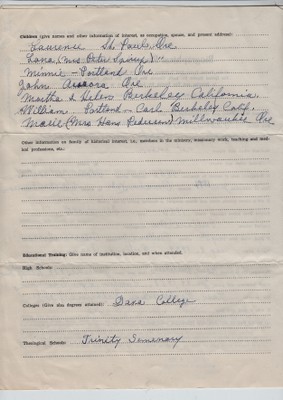 Children (give names and other information of interest, as occupation, spouse, and present address):
Laurence St. Paul, Ore
Lona, (Mrs Peter Jensen) "
Minnie - Portland Ore
John Aurora, Ore
Martha & Helen Berkeley California.
William Portland - Carl Berkeley Calif,
Marie (Mrs Hans Pedersen) Millwaukie Ore
Other information on family of historical interest, i.e., members in the ministry, missionary work, teaching and medical professions, etc.:
Educational Training: Give name of institution, location, and when attended.
High Schools:
Colleges (Give also degrees attained): Dana College
Theological Schools: Trinity Seminary